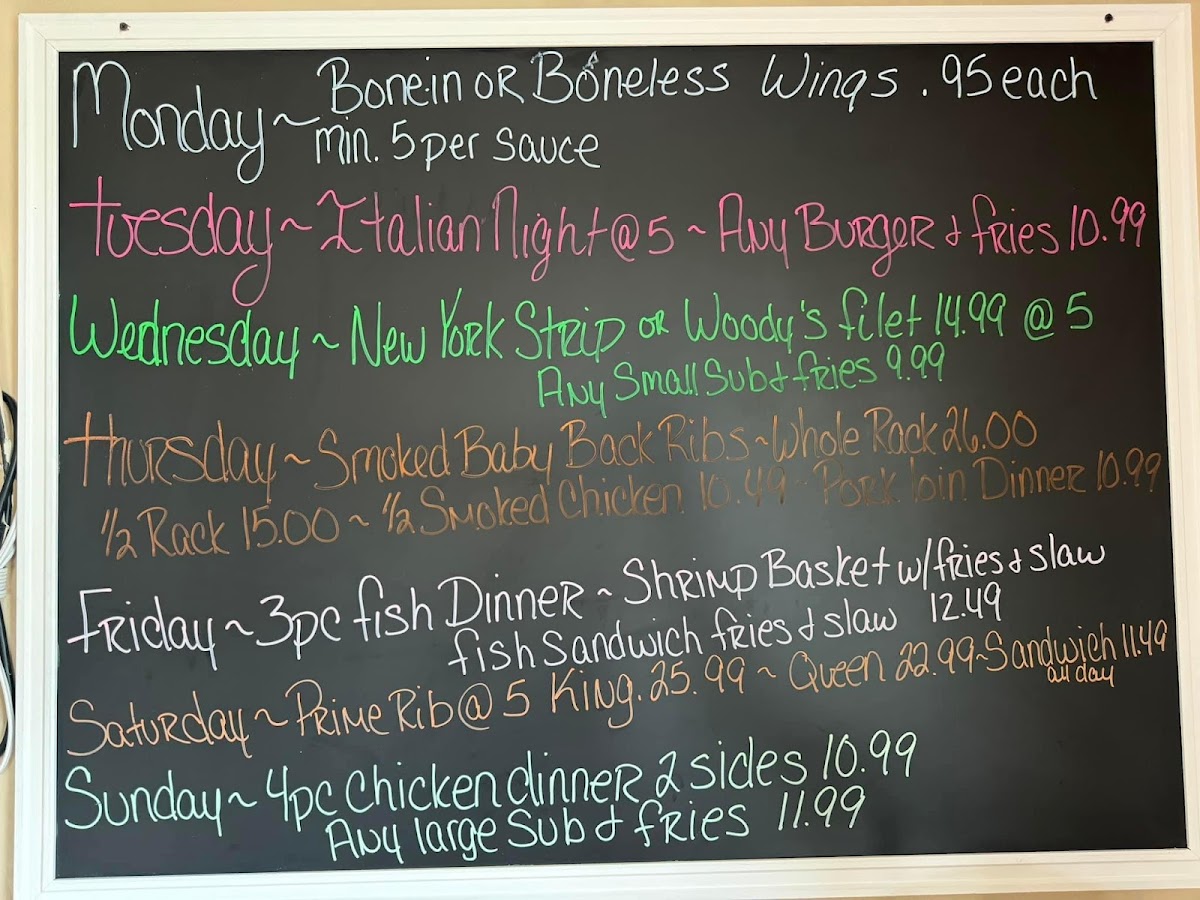 Monday ~ Bone-in or Boneless Wings .95 each
min. 5 per sauce
Tuesday ~ Italian Night @ 5 ~ Any Burger & fries 10.99
Wednesday ~ New York Strip or Woody's filet 14.99 @ 5
Any Small Sub & fries 9.99
Thursday ~ Smoked Baby Back Ribs ~ Whole Rack 26.00
1/2 Rack 15.00 ~ 1/2 Smoked Chicken 10.49 ~ Pork loin Dinner 10.99
Friday ~ 3pc fish Dinner ~ Shrimp Basket w/fries & slaw
fish Sandwich fries & slaw 12.49
Saturday ~ Prime Rib @ 5 King. 25.99 ~ Queen 22.99 ~ Sandwich 11.49
all day
Sunday ~ 4pc Chicken dinner 2 sides 10.99
Any large Sub & fries 11.99